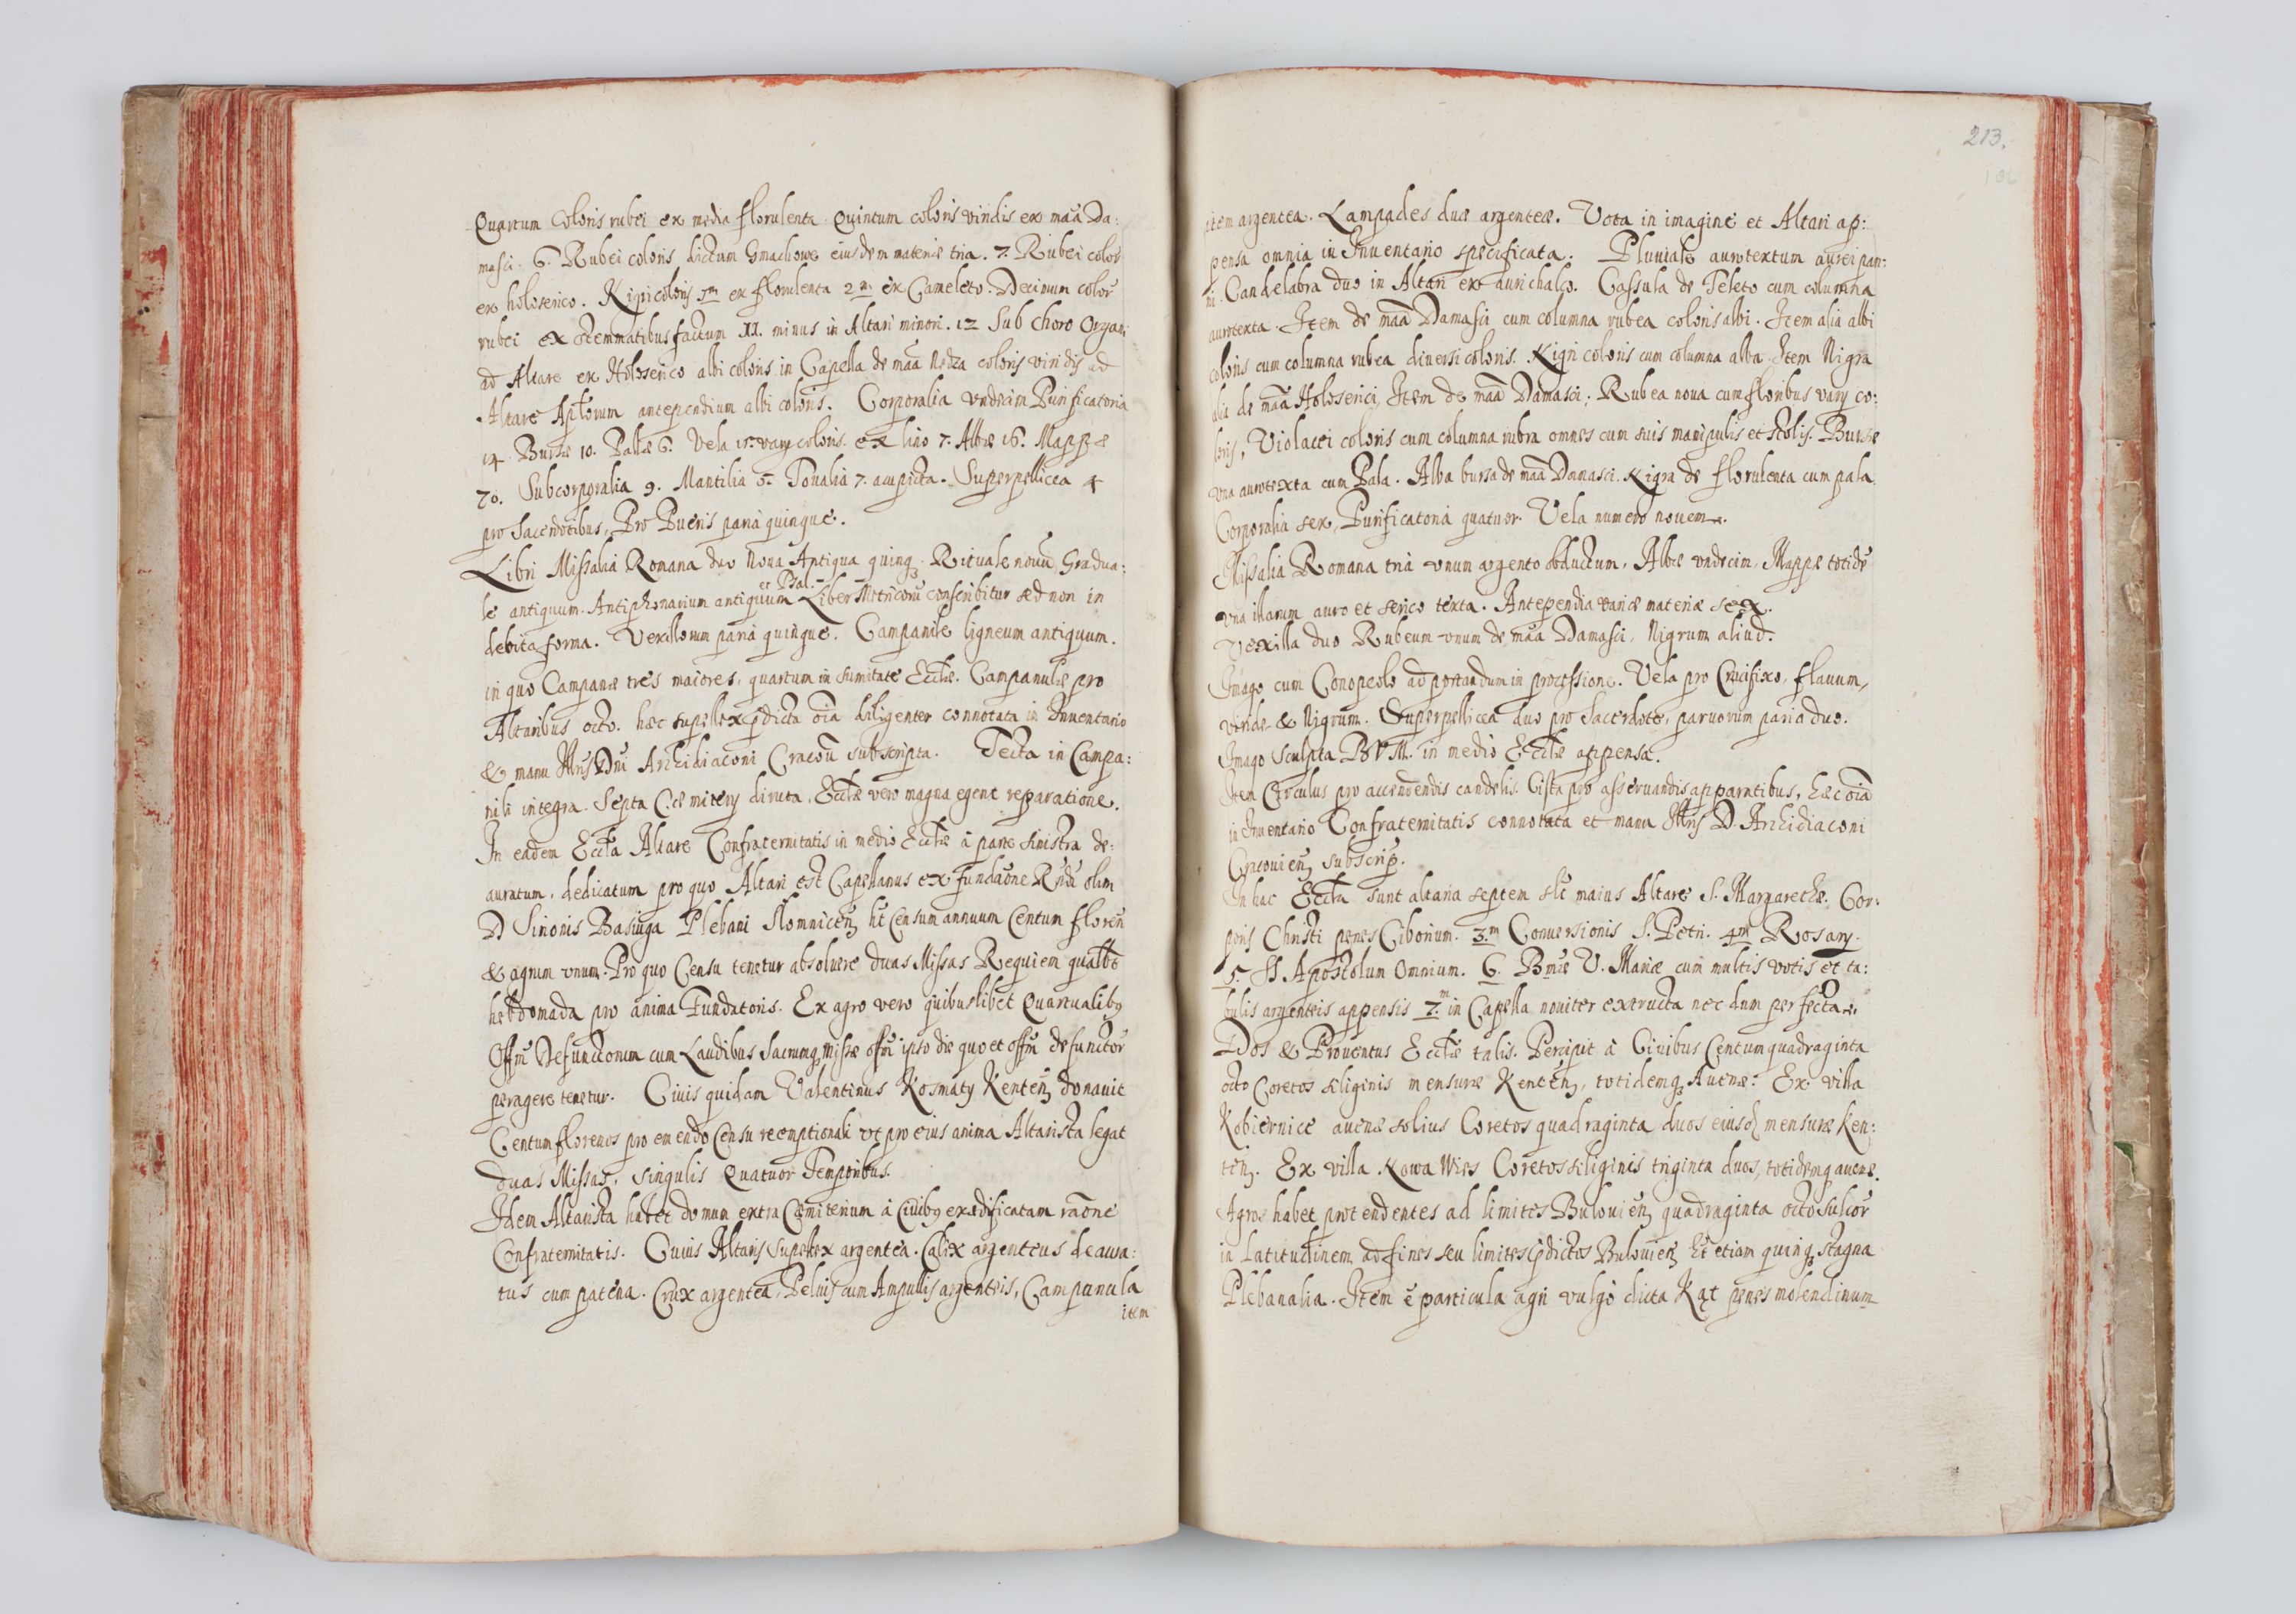 Quartum Coloris rubei ex media florulenta Quintum coloris viridis ex mãa Da:
masci. 6. Rubei coloris dictum Gmachowe eiusdem materiæ tria. 7. Rubei colos
ex holoserico. Nigri coloris 1m ex florulenta 2m ex Cameleto. Decimum color
rubei ex stemmatibus factum II. minus in Altari minori. 12 Sub choro Organi
ad Altare ex Holoserico albi coloris in Capella de mãa coloris viridis ad
Altare Aptorum antependium albi coloris. Corporalia vndecim Purificatoria
14 Bursæ 10. Pallæ 6. Vela 15. vary coloris. ex lino 7. Albæ 16. Mappæ
70. Subcorporalia 9. Mantilia 5. Tonalia 7. aupicta. Superpellicea 4
pro Sacerdotibus, Pro Pueris paria quinque.
Libri Missalia Romana duo Noua Antiqua quinq3. Rituale nouũ, Gradua:
le antiquum. Antiphonarium antiquum et Psal. Liber Metricorũ conscribitur sed non in
debita forma. Vexillorum paria quinque. Campanile ligneum antiquum.
in quo Campanæ tres maiores, quartum in sumitate Ecclæ. Campanulæ pro
Altaribus octo. hæc supellex pdicta oĩa diligenter connotata in Inuentario
& manu Illris Dni Archidiaconi Cracoũ subscripta. Tecta in Campa:
nili integra. Septa Cæmitery diruta, Ecclæ vero magna egent reparatione.
In eadem Eccla Altare Confraternitatis in medio Ecclæ à parte sinistra de:
auratum. dedicatum pro quo Altari est Capellanus ex fundaõne Rndi olim
D Simonis Basinga Plebani Slomniceñ ht Censum annuum Centum floreñ
& agrum vnum. Pro quo Censu tenetur absoluere duas Missas Requiem qualibt
hebdomada pro anima Fundatoris. Ex agro vero quibuslibet Quartualibq
Offm Defunctorum cum Laudibus Sacrumq3 missæ offm ipso die quo et offm defunctor
peragere tenetur. Ciuis quidam Valentinus Kosmaty Kenteñ donauit
Centum florenos pro emendo Censu reemptionali vt pro eius anima Altarista legat
duas Missas, singulis Quatuor Temporibus.
Idem Altarista habet domum extra Cæmiterium à Ciuibq exædificatam rãone
Confraternitatis. Cuius Altaris supellex argentea. Calix argenteus deaura:
tus cum patena. Crux argentea, Peluis cum Ampullis argenteis, Campanula
item
213.
item argentea. Lampades duæ argenteæ. Vota in imagine et Altari ap:
pensa omnia in Inuentario specificata. Pluuiale aurotextum aurei pan:
ni. Candelabra duo in Altari ex aurichalco. Cassula de Teleto cum columna
aurotexta. Item de mãa Damasci cum columna rubea coloris albi. Item alia albi
coloris cum columna rubea diuersi coloris. Nigri coloris cum columna alba Item Nigra
alia de mãa Holoserici, Item de mãa Damasci, Rubea noua cum floribus vary co:
loris, Violacei coloris cum columna rubra omnes cum suis manipulis et stolis. Bursæ
vna aurotexta cum Pala. Alba bursa de mãa Damasci. Nigra de florulenta cum pala
Corporalia sex, Purificatoria quatuor. Vela numero nouem.
Missalia Romana tria vnum argento obductum, Albæ vndecim, Mappæ totidẽ
vna illarum auro et serico texta. Antependia variæ materiæ sex.
Vexilla duo Rubeum vnum de mãa Damasci, Nigrum aliud.
Imago cum Conopeolo ad portandum in processione. Vela pro Crucifixo, flauum,
viride & Nigrum. Superpellicea duo pro Sacerdote, paruorum paria duo.
Imago sculpta B V M. in medio Ecclæ appensa.
Item Circulus pro accendendis candelis. Cista pro asseruandis apparatibus, hæc oĩa
in Inuentario Confraternitatis connotata et manu Illris D. Archidiaconi
Cracouieñ subscrip.
In hac Eccla sunt altaria septem slt maius Altare S. Margarethæ. Cor:
poris Christi penes Ciborium. 3.m Conuersionis S. Petri. 4m Rosary.
5. SS. Apostolum Omnium. 6. Bmæ V. Mariæ cum multis votis et ta:
bulis argenteis appensis 7.m in Capella nouiter extructa nec dum perfecta.
Dos & Prouentus Ecclæ talis. Percipit à Ciuibus Centum quadraginta
octo Coretos siliginis mensuræ Kenteñ, totidemq3 Auenæ: Ex villa
Kobiernice auenæ solius Coretos quadraginta duos eiusd mensuræ Ken:
teñ. Ex villa Nowa Wies Coretos siliginis triginta duos, totidemq3 auenæ.
Agros habet protendentes ad limites Bulouieñ quadraginta octo sulcor
in Latitudinem ad fines seu limites pdictos Bulouieñ ht etiam quinq3 stagna
Plebanalia. Item ẽ particula agri vulgo dicta Kąt penes molendinum